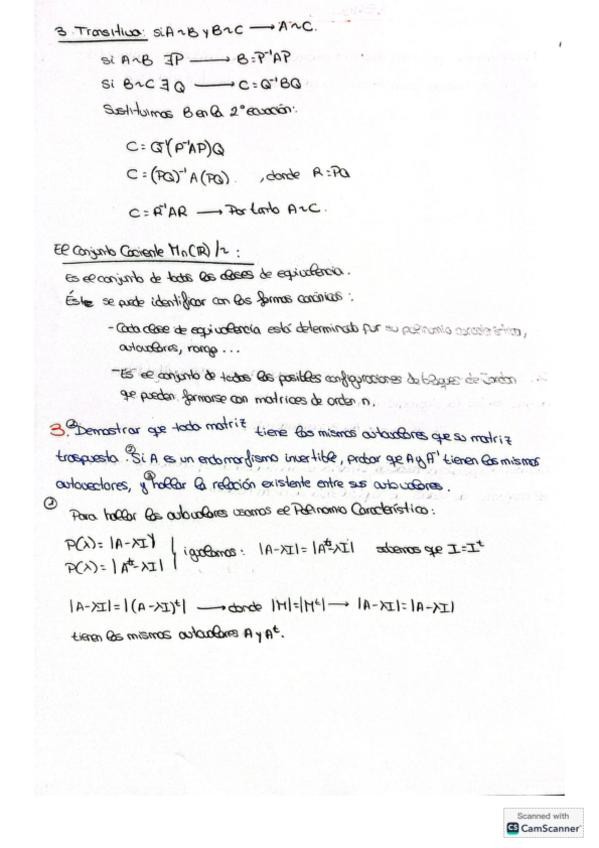 3. Transitiva: si A~B y B~C ⟶ A~C.
si A~B ∃P ⟶ B=P⁻¹AP
si B~C ∃Q ⟶ C=Q⁻¹BQ
Sustituimos B en la 2ª ecuación:
C=Q⁻¹(P⁻¹AP)Q
C=(PQ)⁻¹A(PQ). , donde R=PQ
C=R⁻¹AR ⟶ Por tanto A~C.
El Conjunto Cociente Mn(ℝ)/~ :
Es el conjunto de todas las clases de equivalencia.
Éste se puede identificar con las formas canónicas:
- Cada clase de equivalencia está determinada por su polinomio característico,
autovalores, rango ...
- Es el conjunto de todas las posibles configuraciones de bloques de Jordan
que pueden formarse con matrices de orden n.
3. ① Demostrar que toda matriz tiene los mismos autovalores que su matriz
traspuesta. ② Si A es un endomorfismo invertible, probar que A y A⁻¹ tienen los mismos
autovectores, y ③ hallar la relación existente entre sus autovalores.
① Para hallar los autovalores usamos el Polinomio Característico:
P(λ)=|A-λI|
P(λ)=|Aᵗ-λI| } igualamos: |A-λI|=|Aᵗ-λI| sabemos que I=Iᵗ
|A-λI|=|(A-λI)ᵗ| ⟶ donde |M|=|Mᵗ| ⟶ |A-λI|=|A-λI|
tienen los mismos autovalores A y Aᵗ.
Scanned with
CS CamScanner